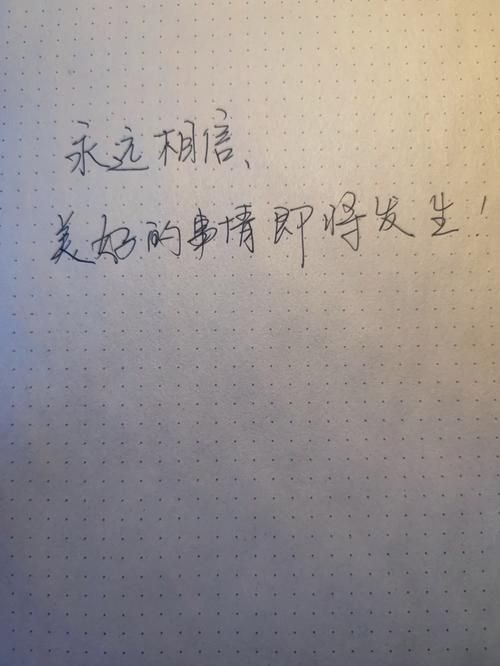 永远相信、
美好的事情即将发生！